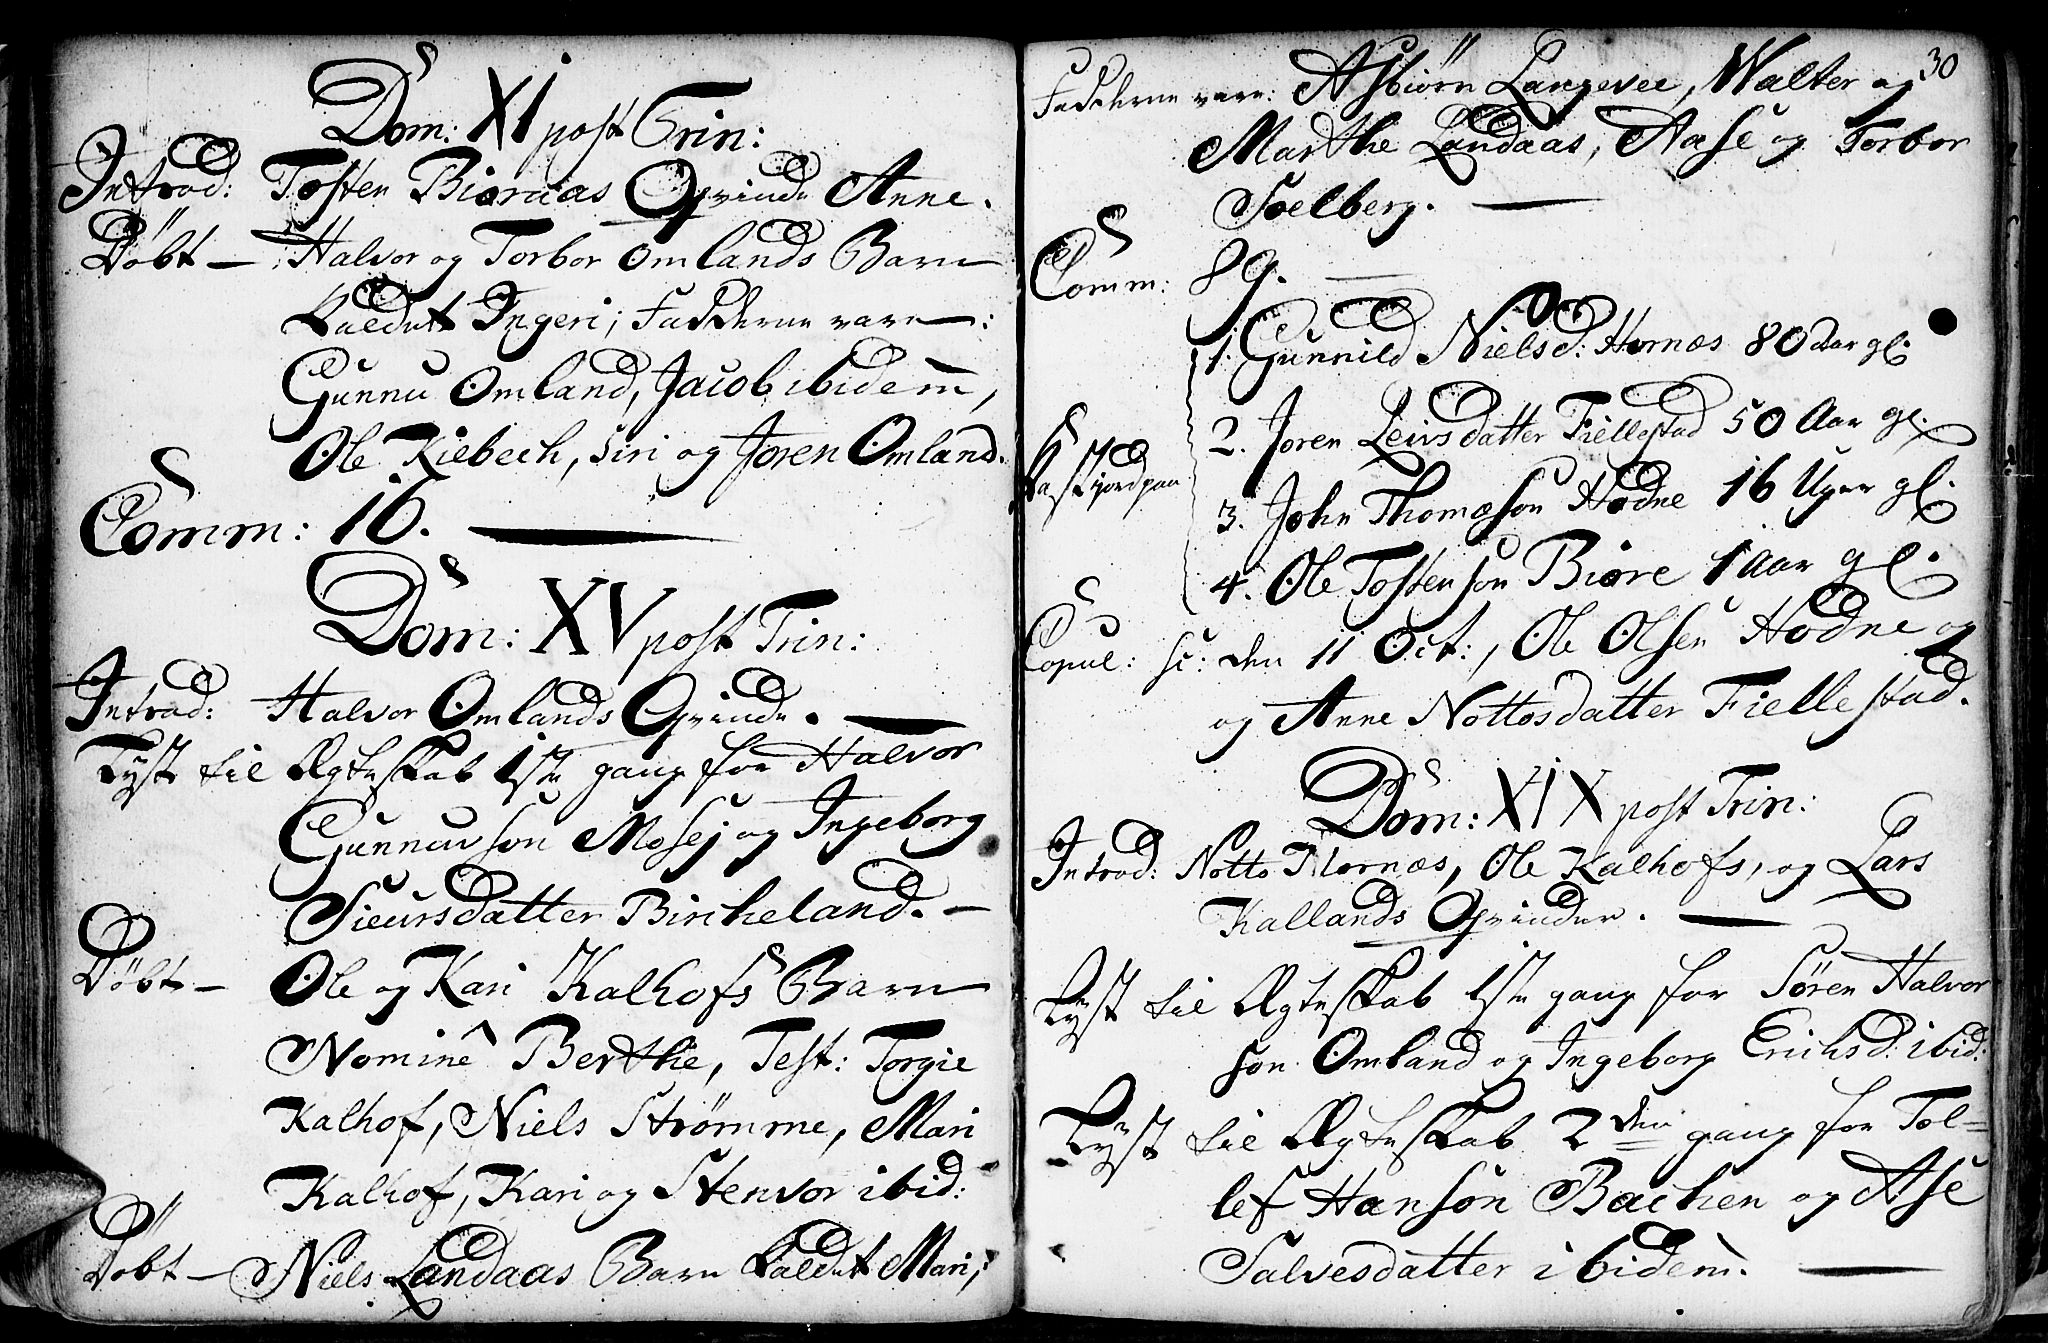 Dom: XI post Trin:
Introd: Tosten Biornaas Qvinde Anne.
Döbt — Halvor og Torbor Omlands Barn
kaldet Ingeri; Fadderne vare:
Gunnu Omland, Jacob ibidem,
Ole Kiebech, Siri og Joren Omland.
Comm: 16. —
Dom: XV post Trin:
Introd: Halvor Omlands Qvinde. —
Lyst til Ægteskab 1ste gang for Halvor
Gunnuvson Mosej og Ingeborg
Sieursdatter Birkeland. —
Döbt — Ole og Kari Kalhofs Barn
Nominê Berthe, Test: Torgie
Kalhof, Niels Strömme, Mari
Kalhof, Kari og Stenvor ibid:
Döbt — Niels Landaas Barn kaldet Mari;
30
Fadderne vare: Asbiörn Langevee, Walter og
Marthe Landaas, Aase og Torbor
Soelberg. —
Comm: 89. —
1. Gunnild Nielsd: Hornæs 80 Aar gl:
2. Joren Leivsdatter Fiellestad 50 Aar gl.
Kast Jord paa
3. John Thomæson Hodne 16 Uger gl.
4. Ole Tostenson Biore 1 Aar gl.
Copul: sc: den 11 Oct:, Ole Olsen Hodne og
og Anne Nottosdatter Fiellestad.
Dom: XIX post Trin:
Introd: Notto Hornæs, Ole Kalhofs, og Lars
Kallands Qvinder. —
Lyst til Ægteskab 1ste gang for Sören Halvor
son Omland og Ingeborg Erichsd: ibid:
Lyst til Ægteskab 2den gang for Tol=
lef Hanson Bachen og Ase
Salvesdatter ibidem. —